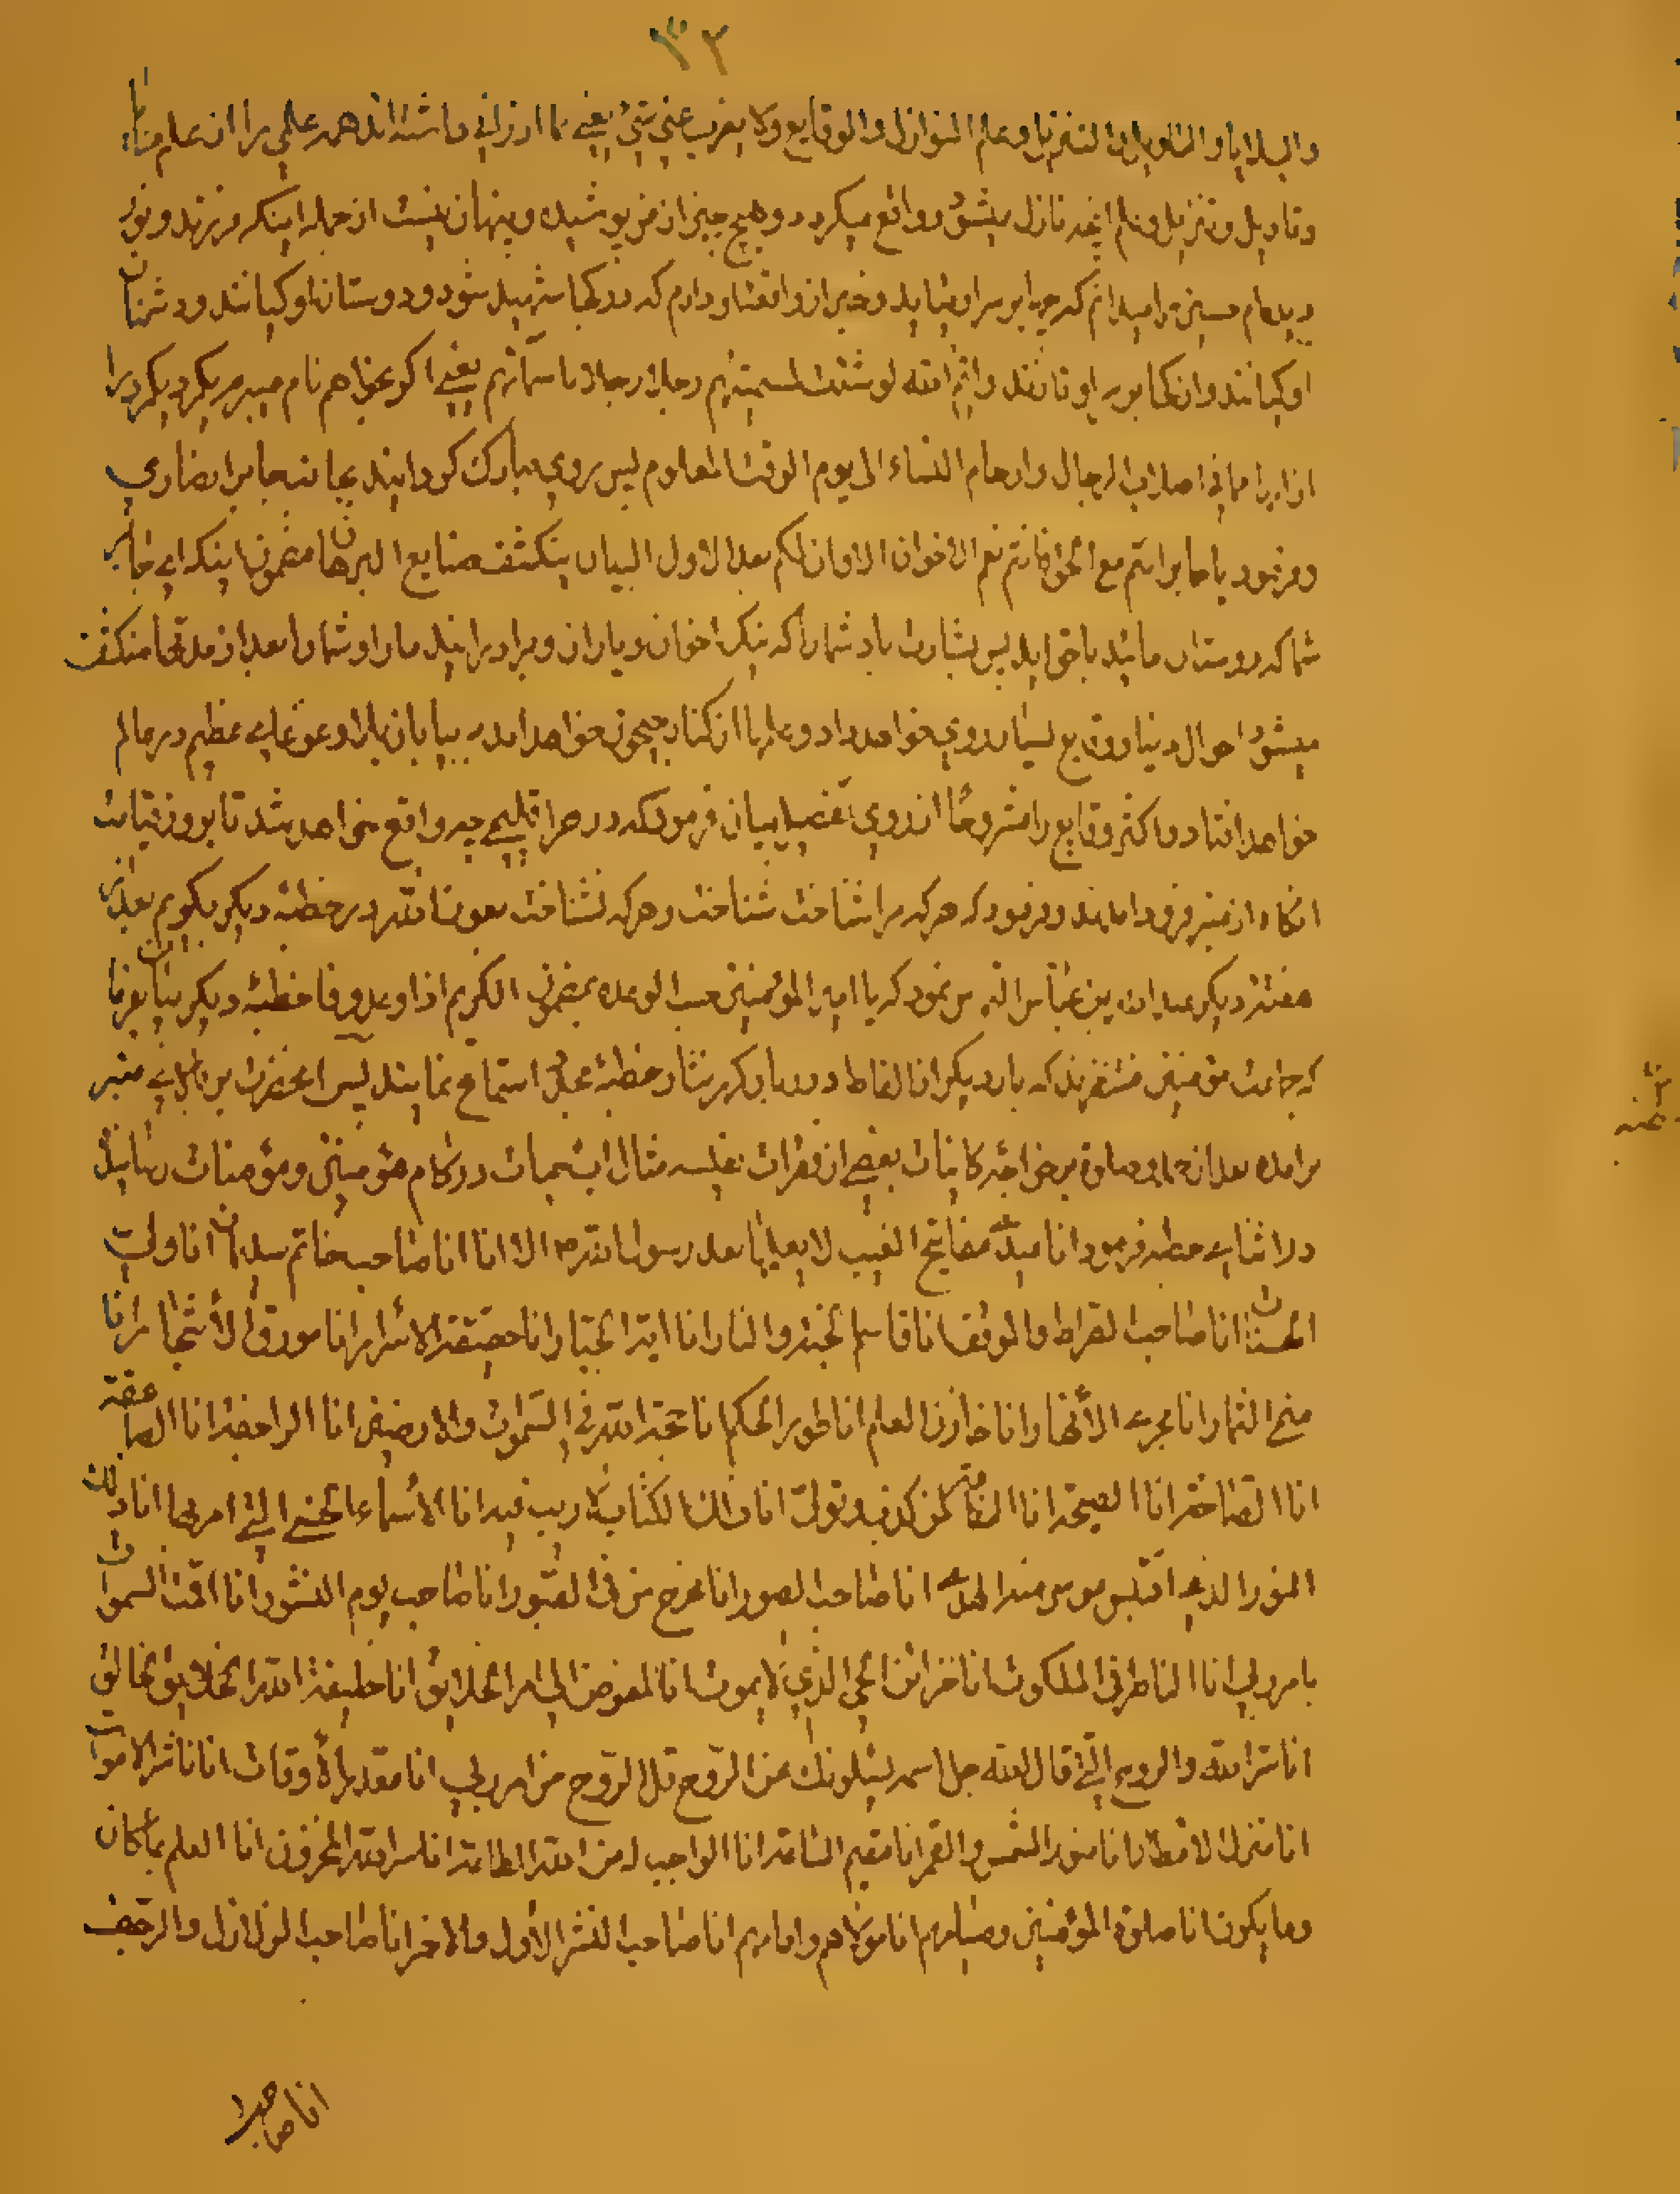 ۳۲
والبلایا والتاویل والتنزیل وعلم النوازل والوقایع ولا یعزب عنی شیئ یعنی بما ارزانی داشته اند همه علمی را از علم منایا
وتاویل وتنزیل وعلم انچه نازل میشود وواقع میکردد وهیچ چیز از من پوشیده وپنهان نیست از جمله اینکه فرزند ونور
دیده ام حسین را میدانم که چه ابر سر او میاید وخبر از واقعه او دارم که در کجا شهید شود ودوستان او کیانند ودشمنان
او کیانند واز کجا بر سر او تازند وایم الله لو شئت لسمیتهم رجلا رجلا باسمآئهم یعنی اکر بخواهم نام میبرم یکدیکر را
اصلاب الرجال وارحام النساء الی یوم الوقت المعلوم پس روی مبارک کردانید بجانب جابر انصاری
وفرمود یا جابر انتم مع الحق فانتم نعم الاخوان لکم بعد الاول البیان ینکشف صنایع البرهان مضمون اینکه ای جابر
شما که دوستان مائید با حق اید پس بشارت باد شما را که نیک اخوان ویاران وبرادرانید ما را وشما را بعد از مدتها منکشف
میشود احوال دنیا ووقایع بسیار روی خواهد داد وعلمها از کنار جیحون خواهد امد به بیابان وغوغای عظیم در عالم
خواهد افتاد واکثر وقایع را مشروحًا از روی تفصیل بیان فرمود که در هر اقلیمی چه واقع خواهد شد تا بروز قیامت
انکاه از منبر فرود امدند وفرمود که هر که مرا شناخت شناخت وهر که نشناخت بعون الله در خطبه دیکر بکویم بعد از ان
هفته دیکر عبدالله بن عباس التماس نمود که یا امیر المؤمنین حسب الوعده بمضمون الکریم اذا وعد وفا خطبه دیکر بیان بفرما
که جماعت مؤمنین منتظرند که بار دیکر از ان الفاظ درربار کهرنثار خطبه استماع نمایند پس انحضرت بر بالای منبر
بر امده بعد از حمد وصلوة بر خواجه کاینات بعضی از فقرات نفیسه مثال در کام مؤمنین ومؤمنات رسانید
در اثنای خطبه فرمود انا عندی مفاتیح الغیب لا یعلمها بعد رسول الله الا انا انا صاحب خاتم سلیمان انا ولی
الحساب انا صاحب الصراط والموقف انا قاسم الجنة والنار انا ایة الجبار انا حقیقة الاسرار انا مورق الأشجار انا
منج الثمار انا مجری الأنهار انا خازن العلم انا طور الحکم انا حجة الله فی السموات والارضین انا الراجفه انا الصاعقه
انا الصاخه انا الصیحه انا القیامة لمن کذب وتولی انا ذلک الکتاب لا ریب فیه انا الأسماء الحسنی التی امر بها انا ذلک
النور الذی اقتبس موسی منه الهدی انا صاحب الصور انا مخرج من فی القبور انا صاحب یوم النشور انا اقمت السموات
بامر ربی انا الناظر فی الملکوت انا خزائن الحی الذی لا یموت انا المفوض الی امر الخلایق انا خلیفة الله الخلایق الخالق
انا سر الله والروح التی قال الله جل اسمه یسئلونک عن الروح قل الروح من امر ربی انا مقدر الأوقات انا ناشر الاموات
انا منزل الاقطار انا منور الشمس والقمر انا مقیم الساعه انا الواجب له من الله الطاعه انا سر الله المخزون انا العلم بما کان
وما یکون انا صلوة المؤمنین وصیامهم انا مولاهم وامامهم انا صاحب النشر الأول والاخر انا صاحب الزلازل والرجف
انا صاحب